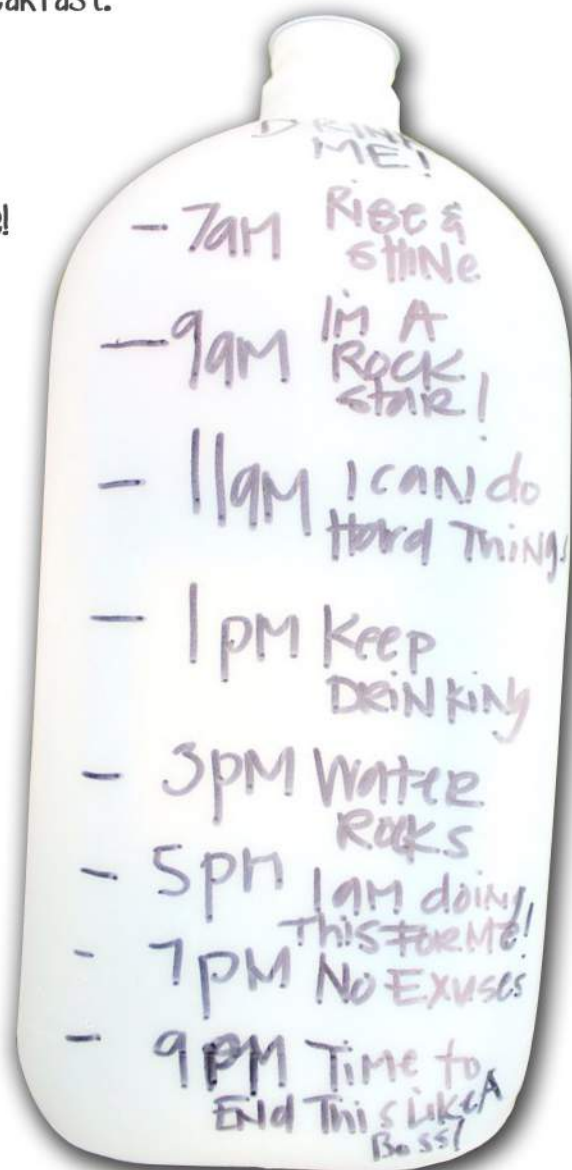 DRINK
ME!
- 7am Rise &
shine
- 9am I'm A
Rock
star!
- 11am I can do
Hard Things
- 1pm Keep
DRINKING
- 3pm Water
Rocks
- 5pm I am doing
This FOR ME!
- 7pm No Exuses
- 9pm Time to
End This Like A
Boss!